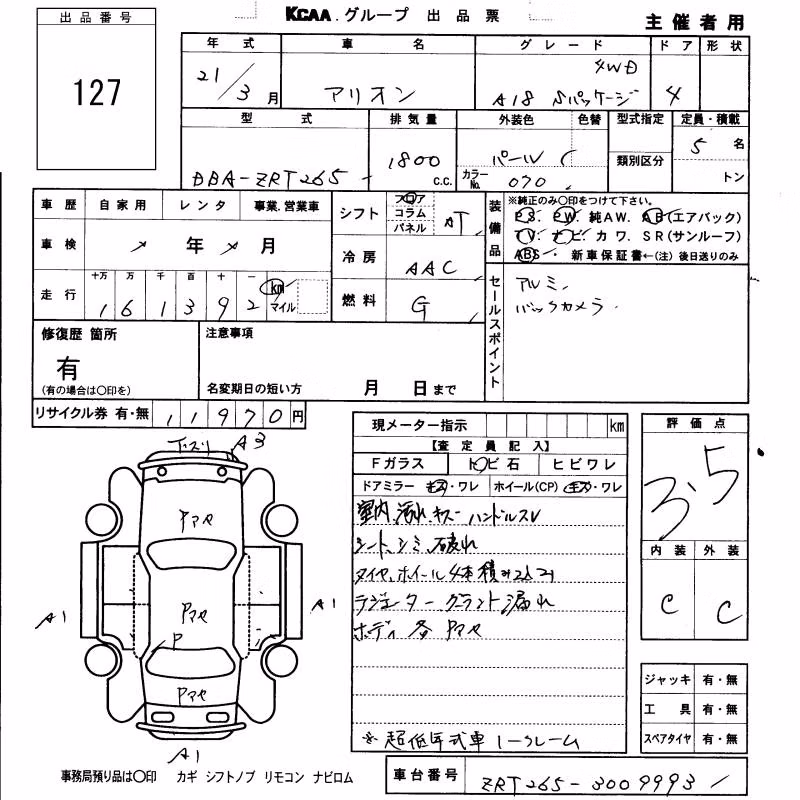 出品番号
127
KCAA.グループ 出品票
主催者用
年式 車名 グレード ドア 形状
21/3月 アリオン 4WD A18 Sパッケージ 4
型式 排気量 外装色 色替 型式指定 定員・積載
DBA-ZRT265- 1800 C.C. パール カラーNo. 070 類別区分 5名 トン
車歴 自家用 レンタ 事業.営業車
車検 年 月
走行 十万 万 千 百 十 一 km マイル
1 6 1 3 9 2
シフト フロア コラム パネル AT
冷房 AAC
燃料 G
装備品
※純正のみ○印をつけて下さい。
PS. PW. 純AW. AB(エアバック)
TV. ナビ. カワ. SR(サンルーフ)
ABS. 新車保証書←(注) 後日送りのみ
セールスポイント
アルミ.
バックカメラ.
修復歴 箇所
有
(有の場合は○印を)
注意事項
名変期日の短い方 月 日まで
リサイクル券 有・無 11970円
現メーター指示 km
【査定員記入】
Fガラス トビ石 ヒビワレ
ドアミラー キズ・ワレ ホイール(CP) キズ・ワレ
室内 汚れ.キズ ハンドルスレ
シート.シミ.破れ
タイヤ.ホイール4本積み
ラジエーター クーラント漏れ
ボディ各 Pアセ
※超低年式車 1~フレーム
評価点
3.5
内装 外装
C C
ジャッキ 有・無
工具 有・無
スペアタイヤ 有・無
下スリ A3
Pアセ
A1 Pアセ A1
P
Pアセ
A1
事務局預り品は○印 カギ シフトノブ リモコン ナビロム
車台番号 ZRT265-3009993